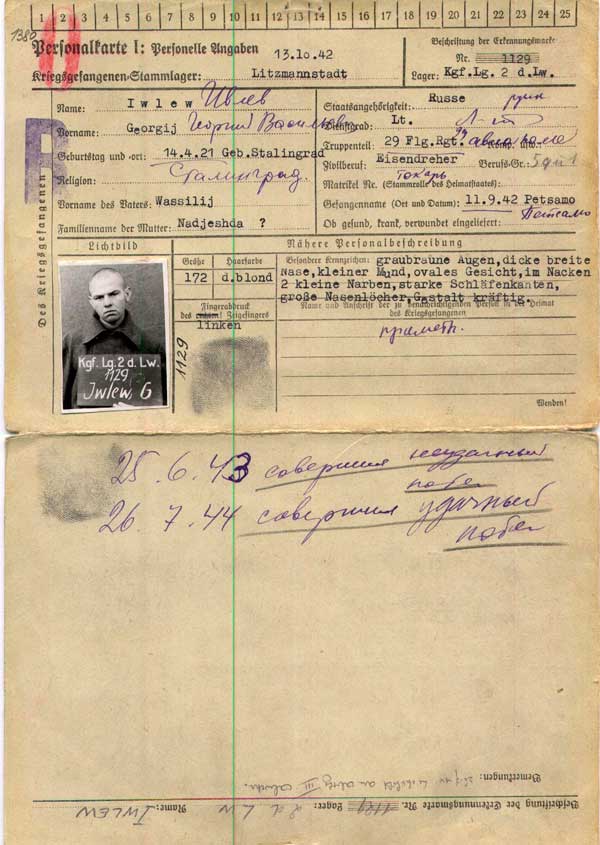 1 2 3 4 5 6 7 8 9 10 11 12 13 14 15 16 17 18 19 20 21 22 23 24 25
1380
Personalkarte I: Personelle Angaben
13.10.42
Kriegsgefangenen-Stammlager: Litzmannstadt
Beschriftung der Erkennungsmarke
Nr. 1129
Lager: Kgf.Lg. 2 d.Lw.
Des Kriegsgefangenen
R
Name: Iwlew Ивлев
Vorname: Georgij Георгий Васильевич
Geburtstag und -ort: 14.4.21 Geb.Stalingrad
Religion: Сталинград
Vorname des Vaters: Wassilij
Familienname der Mutter: Nadjeshda ?
Staatsangehörigkeit: Russe
Dienstgrad: Lt. Л-т
Truppenteil: 29 Flg.Rgt. 29
Zivilberuf: Eisendreher Berufs-Gr.:
токарь
Matrikel Nr. (Stammrolle des Heimatstaates)
Gefangennahme (Ort und Datum): 11.9.42 Petsamo
Петсамо
Ob gesund, krank, verwundet eingeliefert:
Lichtbild
Nähere Personalbeschreibung
Größe
172
Haarfarbe
d.blond
Besondere Kennzeichen: graubraune Augen,dicke breite
Nase,kleiner Mund,ovales Gesicht,im Nacken
2 kleine Narben,starke Schläfenkanten,
große Nasenlöcher,Gestalt kräftig.
Fingerabdruck
des rechten! Zeigefingers
linken
Name und Anschrift der zu benachrichtigenden Person in der Heimat
des Kriegsgefangenen
1129
Kgf. Lg. 2 d. Lw.
1129
Jwlew, G
Wenden!
25.6.43 совершил неудачный
побег
26.7.44 совершил удачный
побег
Bemerkungen:
Beschriftung der Erkennungsmarke Nr. 1129 Lager: 2 d LW Name: JWLEW